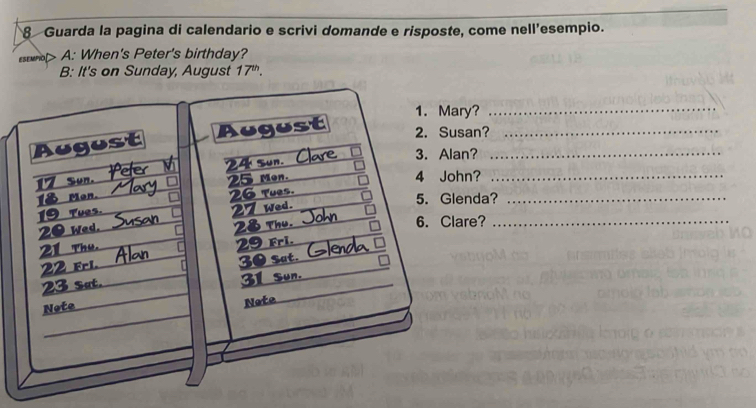 8 Guarda la pagina di calendario e scrivi domande e risposte, come nell'esempio.
ESEMPIO A: When's Peter's birthday?
B: It's on Sunday, August 17th.
August
17 Sun. Peter
18 Mon. Mary
19 Tues.
20 Wed. Susan
21 Thu.
22 Fri. Alan
23 Sat.
Note
August
24 Sun. Clare
25 Mon.
26 Tues.
27 Wed.
28 Thu. John
29 Fri.
30 Sat. Glenda
31 Sun.
Note
1. Mary?
2. Susan?
3. Alan?
4 John?
5. Glenda?
6. Clare?